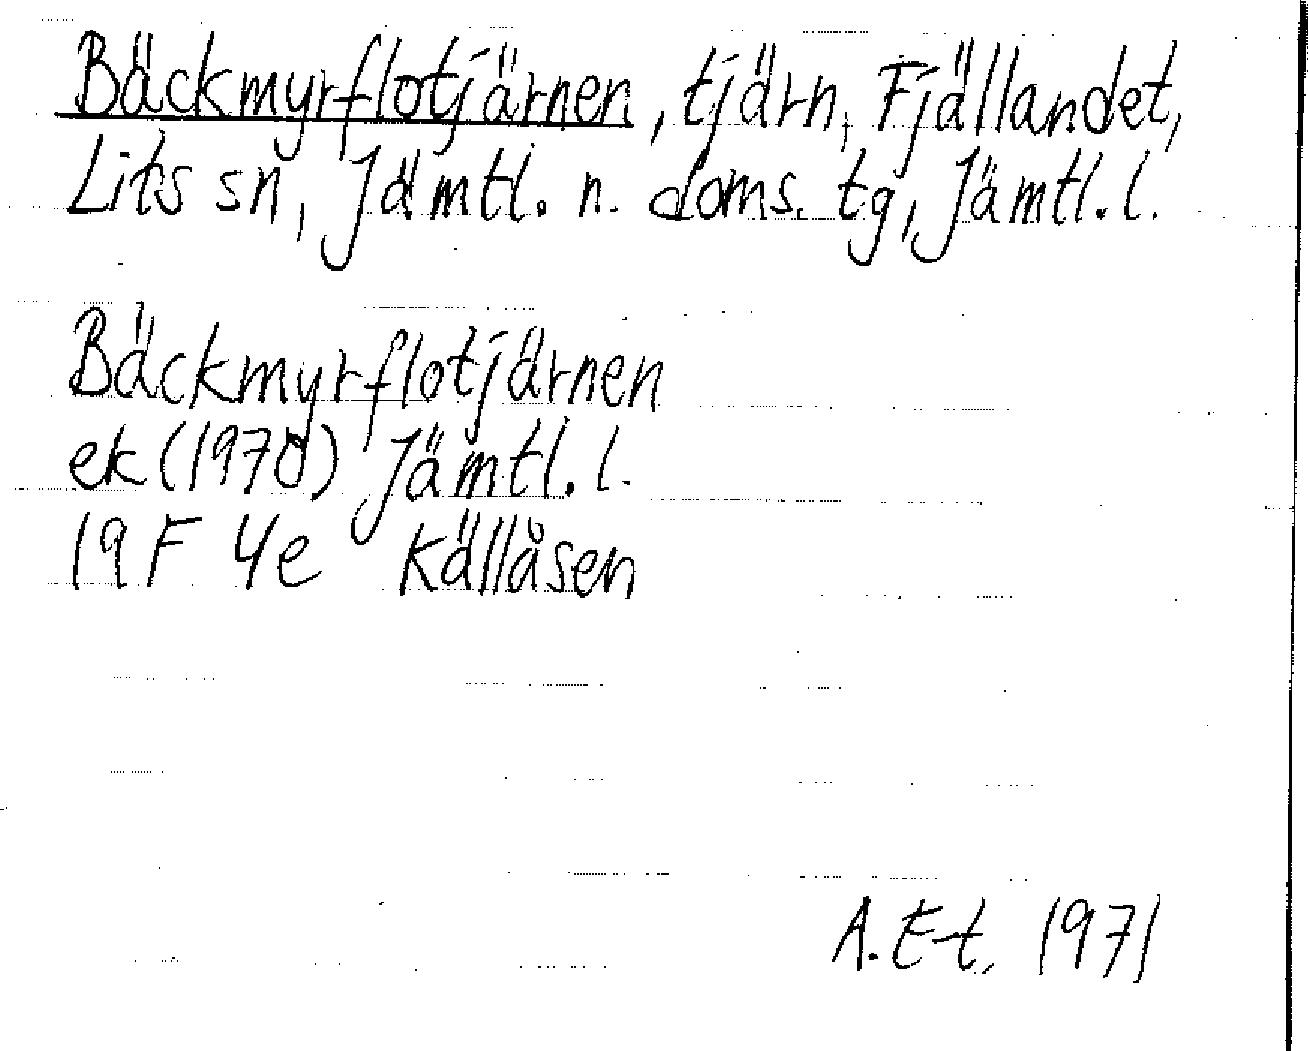 Bäckmyrflotjärnen, tjärn, Fjällandet,
Lits sn, Jämtl. n. doms. tg, Jämtl. l.
Bäckmyrflotjärnen
ek (1970) Jämtl. l.
19 F 4e Källåsen
A. E-t, 1971